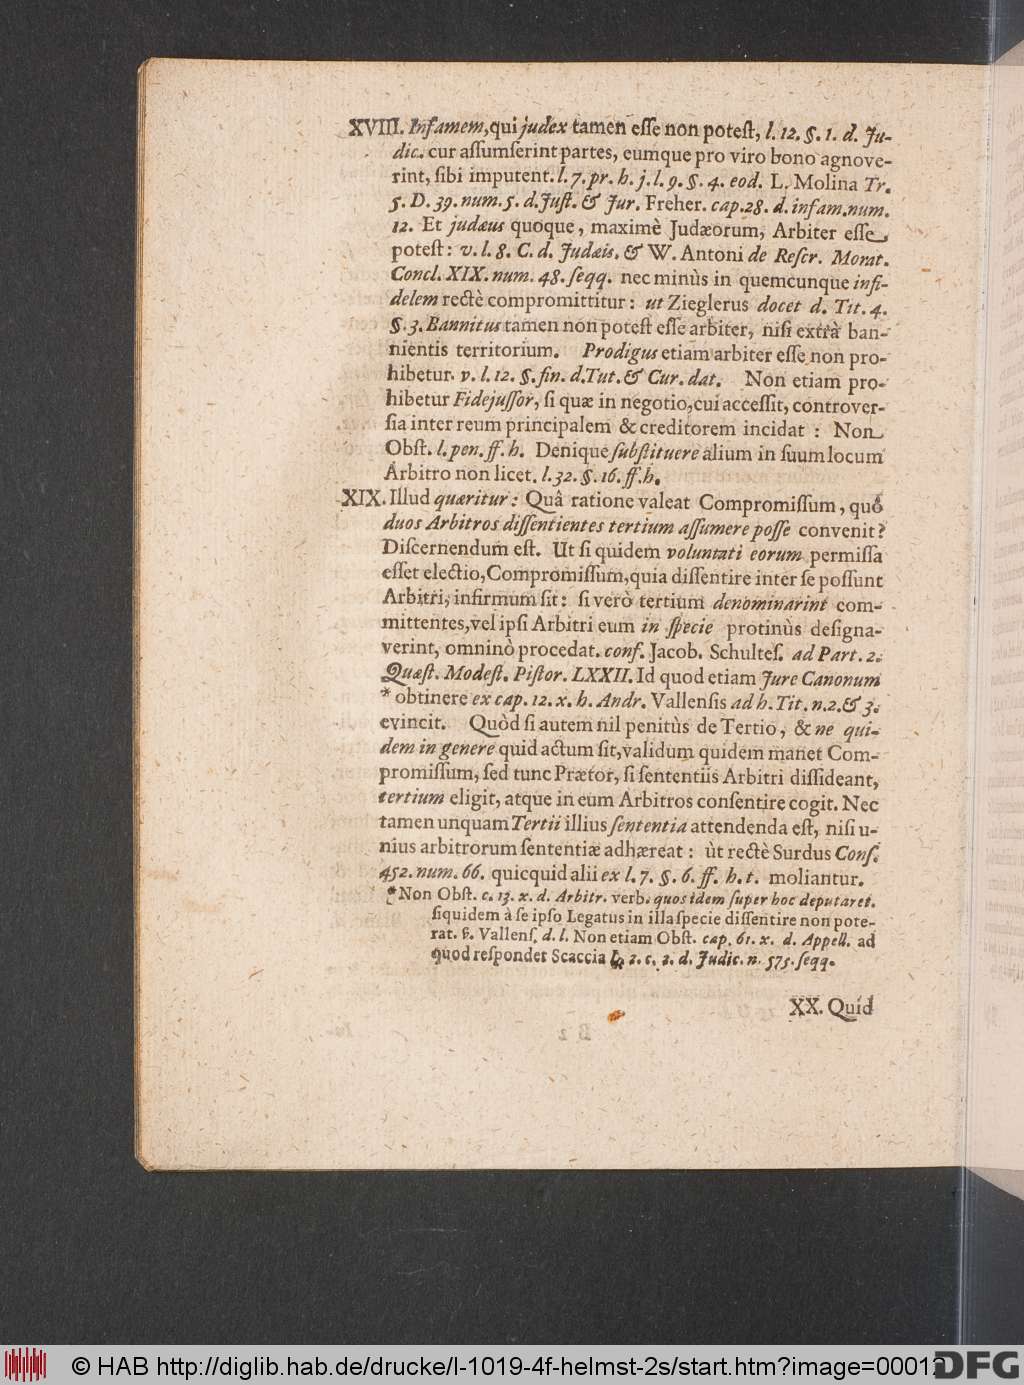 XVIII. Infamem, qui judex tamen eſſe non poteſt, l. 12. §. 1. d. Ju-
dic. cur aſſumſerint partes, eumque pro viro bono agnove-
rint, ſibi imputent. l. 7. pr. h. j. l. 9. §. 4. eod. L. Molina Tr.
5. D. 39. num. 5. d. Juſt. & Jur. Freher. cap. 28. d. infam. num.
12. Et judæus quoque, maximè Judæorum, Arbiter eſſe
poteſt: v. l. 8. C. d. Judæis. & W. Antoni de Reſcr. Morat.
Concl. XIX. num. 48. ſeqq. nec minùs in quemcunque infi-
delem rectè compromittitur: ut Zieglerus docet d. Tit. 4.
§. 3. Bannitus tamen non poteſt eſſe arbiter, niſi extrà ban-
nientis territorium. Prodigus etiam arbiter eſſe non pro-
hibetur. v. l. 12. §. fin. d. Tut. & Cur. dat. Non etiam pro-
hibetur Fidejuſſor, ſi quæ in negotio, cui acceſſit, controver-
ſia inter reum principalem & creditorem incidat: Non
Obſt. l. pen. ff. h. Denique ſubſtituere alium in ſuum locum
Arbitro non licet. l. 32. §. 16. ff. h.
XIX. Illud quæritur: Quâ ratione valeat Compromiſſum, quô
duos Arbitros diſſentientes tertium aſſumere poſſe convenit?
Diſcernendum eſt. Ut ſi quidem voluntati eorum permiſſa
eſſet electio, Compromiſſum, quia diſſentire inter ſe poſſunt
Arbitri, infirmum ſit: ſi verò tertium denominarint com-
mittentes, vel ipſi Arbitri eum in ſpecie protinùs deſigna-
verint, omninò procedat. conf. Jacob. Schulteſ. ad Part. 2.
Quæſt. Modeſt. Piſtor. LXXII. Id quod etiam Jure Canonum
* obtinere ex cap. 12. x. h. Andr. Vallenſis ad h. Tit. n. 2. & 3.
evincit. Quòd ſi autem nil penitùs de Tertio, & ne qui-
dem in genere quid actum ſit, validum quidem manet Com-
promiſſum, ſed tunc Prætor, ſi ſententiis Arbitri diſſideant,
tertium eligit, atque in eum Arbitros conſentire cogit. Nec
tamen unquam Tertii illius ſententia attendenda eſt, niſi u-
nius arbitrorum ſententiæ adhæreat: ùt rectè Surdus Conſ.
452. num. 66. quicquid alii ex l. 7. §. 6. ff. h. t. moliantur.
* Non Obſt. c. 13. x. d. Arbitr. verb. quos idem ſuper hoc deputaret.
ſiquidem à ſe ipſo Legatus in illa ſpecie diſſentire non pote-
rat. Vallenſ. d. l. Non etiam Obſt. cap. 61. x. d. Appell. ad
quod reſpondet Scaccia L. 2. c. 2. d. Judic. n. 575. ſeqq.
XX. Quid
© HAB http://diglib.hab.de/drucke/l-1019-4f-helmst-2s/start.htm?image=00012
DFG